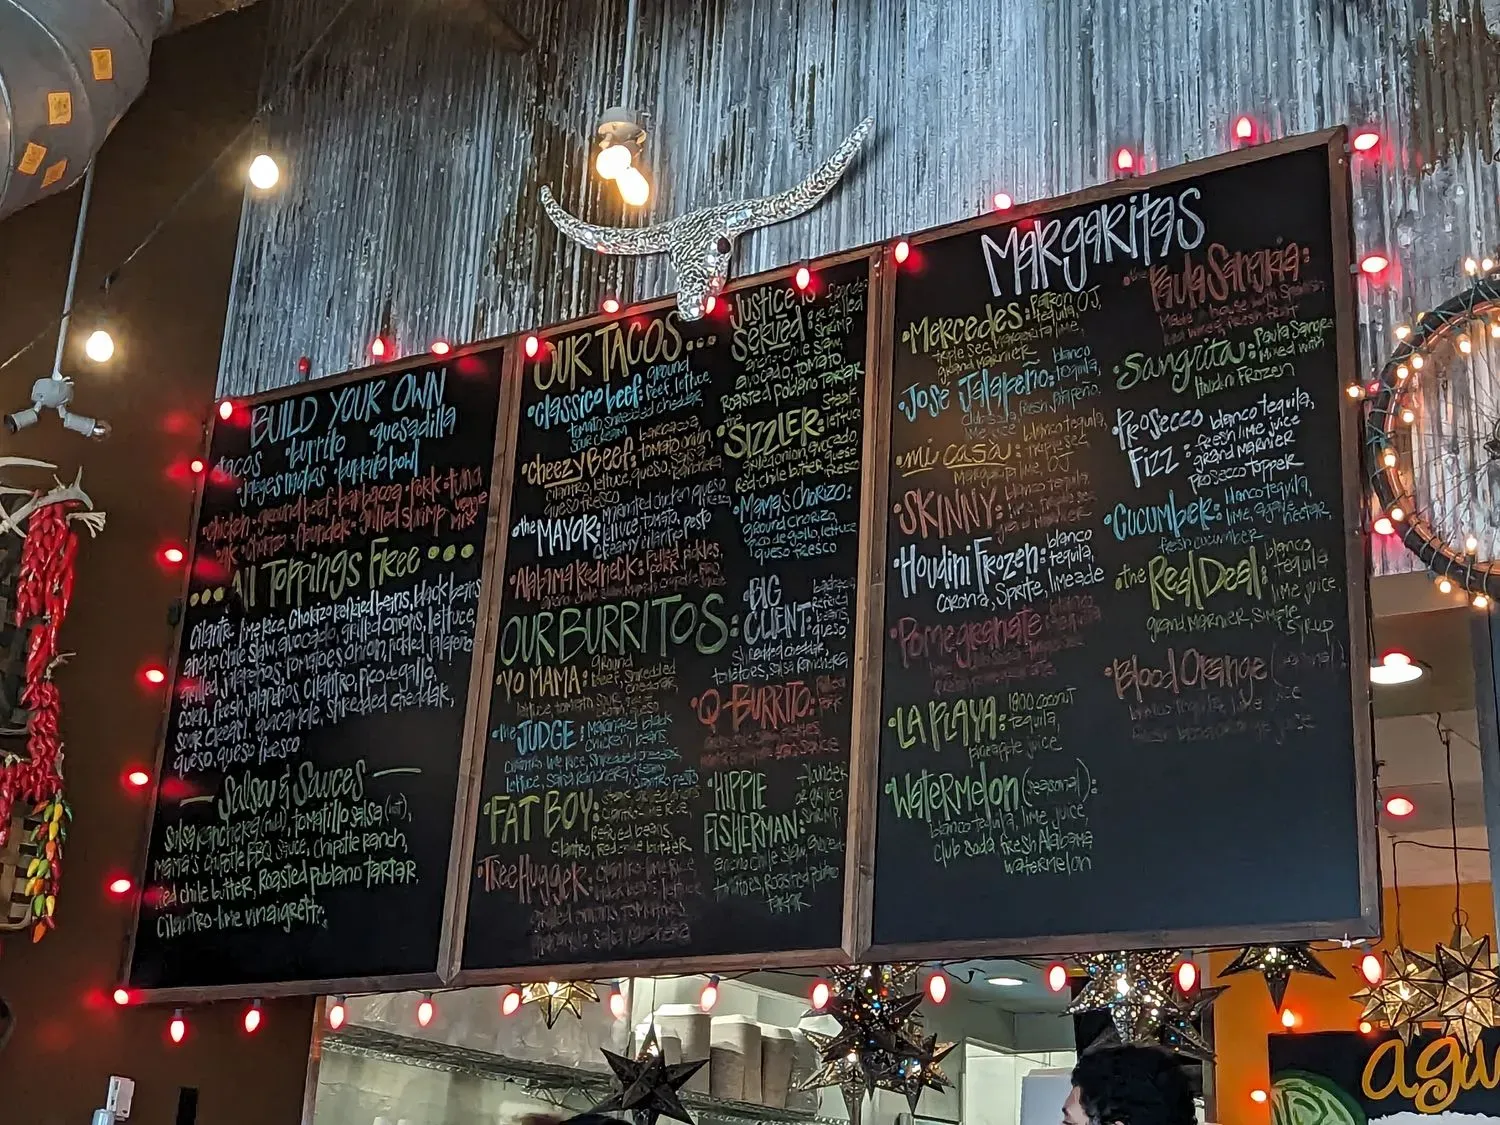 BUILD YOUR OWN
tacos · burrito · quesadilla
· burrito bowl
· chicken · ground beef · barbacoa · pork · tuna
· grilled shrimp veggie mix
... All Toppings Free ...
cilantro lime rice, chorizo refried beans, black beans
ancho chile slaw, avocado, grilled onions, lettuce,
grilled jalapeños, tomatoes, onion, pickled jalapeño
corn, fresh jalapeños, cilantro, pico de gallo,
sour cream, guacamole, shredded cheddar,
queso, queso fresco
— Salsa & Sauces —
Salsa ranchera (mild), tomatillo salsa (hot),
Mama's chipotle BBQ sauce, chipotle ranch,
red chile butter, Roasted poblano tartar,
cilantro-lime vinaigrette
OUR TACOS...
· Classico beef: ground
beef, lettuce,
tomato, shredded cheddar
sour cream
· Cheezy Beef: barbacoa,
tomato, onion,
cilantro, lettuce, queso, salsa ranchera
queso fresco
· the MAYOR: Marinated chicken, queso
lettuce, tomato, fresco
creamy cilantro pesto
· Alabama Redneck: Pulled pork, pickles,
Justice is
Served:
or grilled
shrimp,
ancho chile slaw,
avocado, tomato,
Roasted poblano tartar
· the SIZZLER: steak,
lettuce
grilled onion, avocado,
red chile butter, queso
fresco
· Mama's Chorizo:
ground chorizo,
pico de gallo, lettuce
queso fresco
OUR BURRITOS:
· YO MAMA: ground
beef, shredded
cheddar,
lettuce, tomato
· the JUDGE: Marinated black
chicken, beans
cilantro lime rice, shredded cheddar
lettuce, salsa ranchera, creamy cilantro pesto
· FAT BOY: steak, grilled onions
cilantro lime rice,
Refried beans,
cilantro, red chile butter
· Tree Hugger: cilantro lime Rice
black beans, lettuce
grilled onions, tomatoes
guacamole, salsa ranchera
· BIG
CLIENT:
Refried
beans,
queso,
shredded cheddar,
tomatoes, salsa ranchera
· Q-BURRITO:
· HIPPIE
FISHERMAN:
flounder
or grilled
shrimp,
ancho chile slaw,
tomatoes, Roasted poblano
tartar
MARGARITAS
· Mercedes: Patron, OJ,
tequila,
triple sec, margarita lime,
grand marnier
· Jose Jalapeño: blanco
tequila,
club soda, fresh jalapeño,
· mi casa: blanco tequila,
triple sec
margarita lime, OJ
· SKINNY: blanco tequila,
· Houdini Frozen: blanco
tequila,
corona, Sprite, limeade
· Pomegranate: blanco
· LA PLAYA: 1800 coconut
tequila,
pineapple juice
· Watermelon (seasonal):
blanco tequila, lime juice,
club soda, fresh Alabama
watermelon
· the Paula Sangria:
· Sangrita: Paula Sangria
Mixed with
Houdini Frozen
· Prosecco
Fizz:
blanco tequila,
fresh lime juice
grand marnier
prosecco topper
· Cucumber: blanco tequila,
lime, agave nectar,
fresh cucumber
· the Real Deal: blanco
tequila
lime juice,
grand marnier, simple
syrup
· Blood Orange (seasonal)
agu